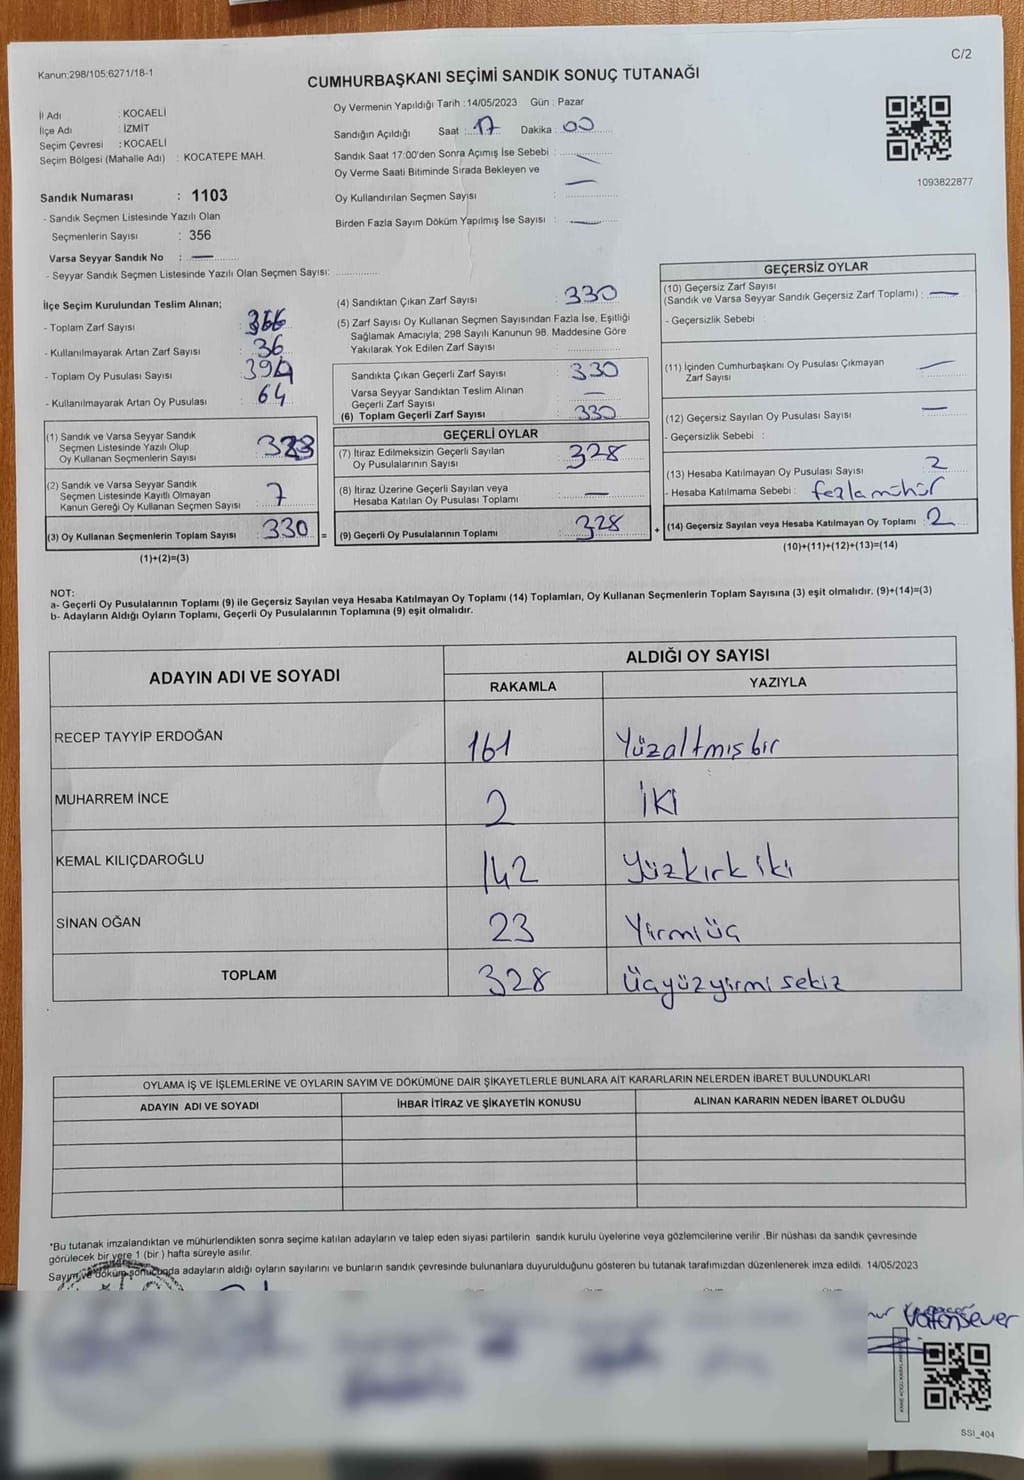 C/2
Kanun:298/105;6271/18-1
CUMHURBAŞKANI SEÇİMİ SANDIK SONUÇ TUTANAĞI
İl Adı : KOCAELİ
İlçe Adı : İZMİT
Seçim Çevresi : KOCAELİ
Seçim Bölgesi (Mahalle Adı) : KOCATEPE MAH.
Sandık Numarası : 1103
- Sandık Seçmen Listesinde Yazılı Olan
Seçmenlerin Sayısı : 356
Varsa Seyyar Sandık No : —
- Seyyar Sandık Seçmen Listesinde Yazılı Olan Seçmen Sayısı: ...............
Oy Vermenin Yapıldığı Tarih : 14/05/2023 Gün : Pazar
Sandığın Açıldığı Saat : 17 Dakika : 00
Sandık Saat 17:00'den Sonra Açımış İse Sebebi : —
Oy Verme Saati Bitiminde Sırada Bekleyen ve
Oy Kullandırılan Seçmen Sayısı : —
Birden Fazla Sayım Döküm Yapılmış İse Sayısı : —
1093822877
İlçe Seçim Kurulundan Teslim Alınan;
- Toplam Zarf Sayısı : 366
- Kullanılmayarak Artan Zarf Sayısı : 36
- Toplam Oy Pusulası Sayısı : 394
- Kullanılmayarak Artan Oy Pusulası : 64
(1) Sandık ve Varsa Seyyar Sandık
Seçmen Listesinde Yazılı Olup
Oy Kullanan Seçmenlerin Sayısı : 323
(2) Sandık ve Varsa Seyyar Sandık
Seçmen Listesinde Kayıtlı Olmayan
Kanun Gereği Oy Kullanan Seçmen Sayısı : 7
(3) Oy Kullanan Seçmenlerin Toplam Sayısı : 330 =
(1)+(2)=(3)
(4) Sandıktan Çıkan Zarf Sayısı : 330
(5) Zarf Sayısı Oy Kullanan Seçmen Sayısından Fazla İse, Eşitliği
Sağlamak Amacıyla; 298 Sayılı Kanunun 98. Maddesine Göre
Yakılarak Yok Edilen Zarf Sayısı
Sandıkta Çıkan Geçerli Zarf Sayısı : 330
Varsa Seyyar Sandıktan Teslim Alınan
Geçerli Zarf Sayısı : —
(6) Toplam Geçerli Zarf Sayısı : 330
GEÇERLİ OYLAR
(7) İtiraz Edilmeksizin Geçerli Sayılan
Oy Pusulalarının Sayısı : 328
(8) İtiraz Üzerine Geçerli Sayılan veya
Hesaba Katılan Oy Pusulası Toplamı : —
(9) Geçerli Oy Pusulalarının Toplamı : 328 +
GEÇERSİZ OYLAR
(10) Geçersiz Zarf Sayısı
(Sandık ve Varsa Seyyar Sandık Geçersiz Zarf Toplamı) : —
- Geçersizlik Sebebi :
(11) İçinden Cumhurbaşkanı Oy Pusulası Çıkmayan
Zarf Sayısı —
(12) Geçersiz Sayılan Oy Pusulası Sayısı —
- Geçersizlik Sebebi :
(13) Hesaba Katılmayan Oy Pusulası Sayısı 2
- Hesaba Katılmama Sebebi : fezla mühür
(14) Geçersiz Sayılan veya Hesaba Katılmayan Oy Toplamı : 2
(10)+(11)+(12)+(13)=(14)
NOT:
a- Geçerli Oy Pusulalarının Toplamı (9) ile Geçersiz Sayılan veya Hesaba Katılmayan Oy Toplamı (14) Toplamları, Oy Kullanan Seçmenlerin Toplam Sayısına (3) eşit olmalıdır. (9)+(14)=(3)
b- Adayların Aldığı Oyların Toplamı, Geçerli Oy Pusulalarının Toplamına (9) eşit olmalıdır.
ADAYIN ADI VE SOYADI ALDIĞI OY SAYISI
RAKAMLA YAZIYLA
RECEP TAYYİP ERDOĞAN 161 Yüzaltmışbir
MUHARREM İNCE 2 İKİ
KEMAL KILIÇDAROĞLU 142 Yüzkırkiki
SİNAN OĞAN 23 Yirmiüç
TOPLAM 328 Üçyüzyirmi sekiz
OYLAMA İŞ VE İŞLEMLERİNE VE OYLARIN SAYIM VE DÖKÜMÜNE DAİR ŞİKAYETLERLE BUNLARA AİT KARARLARIN NELERDEN İBARET BULUNDUKLARI
ADAYIN ADI VE SOYADI İHBAR İTİRAZ VE ŞİKAYETİN KONUSU ALINAN KARARIN NEDEN İBARET OLDUĞU
*Bu tutanak imzalandıktan ve mühürlendikten sonra seçime katılan adayların ve talep eden siyasi partilerin sandık kurulu üyelerine veya gözlemcilerine verilir .Bir nüshası da sandık çevresinde
görülecek bir yere 1 (bir ) hafta süreyle asılır.
Sayım ve döküm sonucunda adayların aldığı oyların sayılarını ve bunların sandık çevresinde bulunanlara duyurulduğunu gösteren bu tutanak tarafımızdan düzenlenerek imza edildi. 14/05/2023
Vatansever
SSI_404